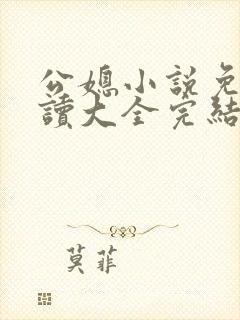 公媳小説免
讀大全完結
莫菲